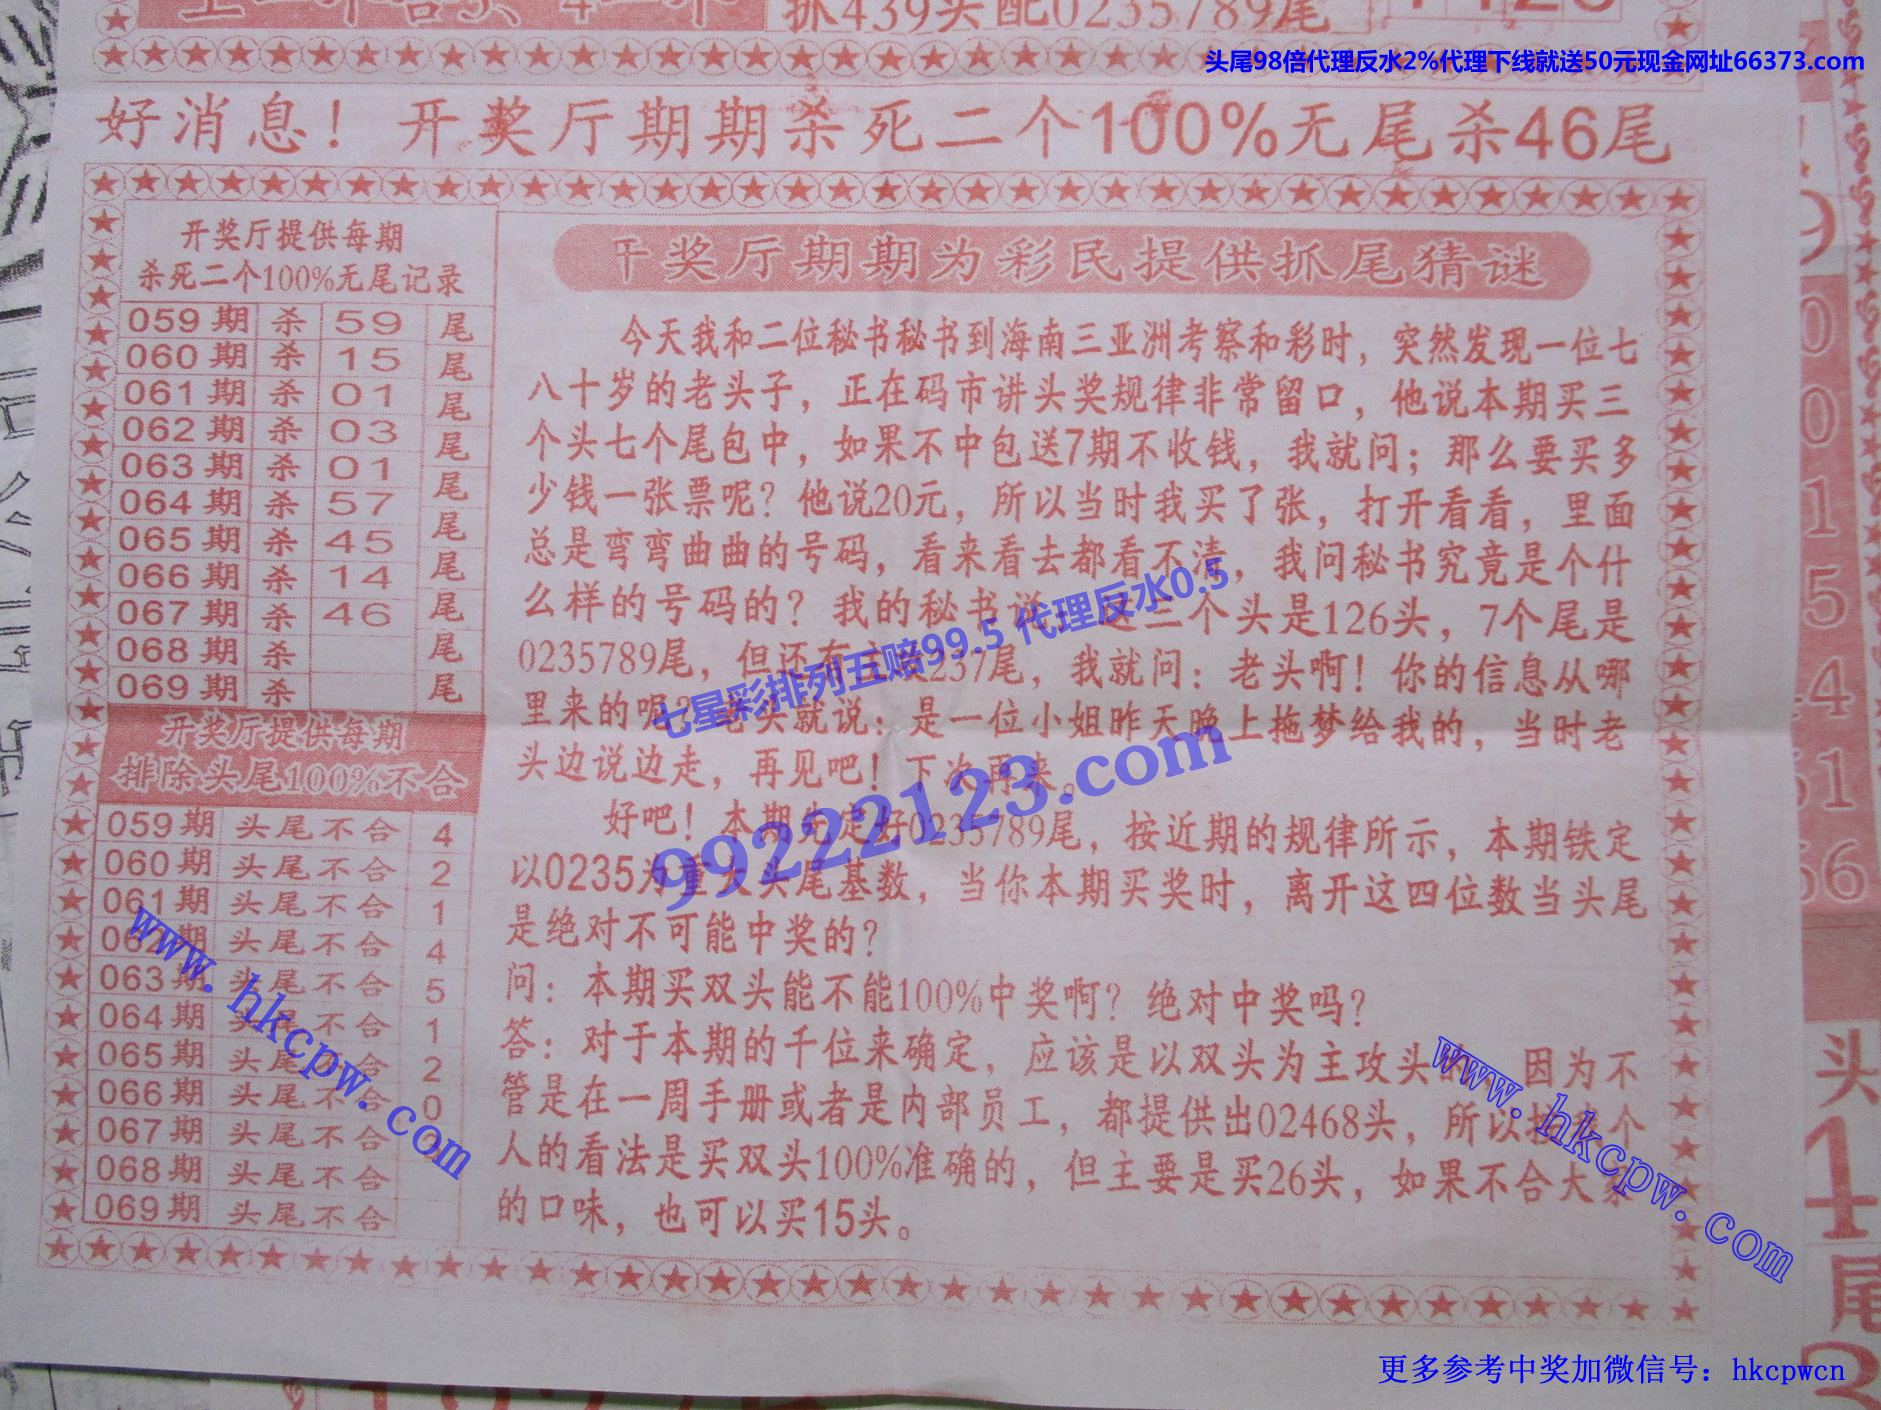 抓439头配0235789尾
头尾98倍代理反水2%代理下线就送50元现金网址66373.com
好消息！开奖厅期期杀死二个100%无尾杀46尾
开奖厅提供每期
杀死二个100%无尾记录
059期 杀 59 尾
060期 杀 15 尾
061期 杀 01 尾
062期 杀 03 尾
063期 杀 01 尾
064期 杀 57 尾
065期 杀 45 尾
066期 杀 14 尾
067期 杀 46 尾
068期 杀 尾
069期 杀 尾
开奖厅提供每期
排除头尾100%不合
059期 头尾不合 4
060期 头尾不合 2
061期 头尾不合 1
062期 头尾不合 4
063期 头尾不合 5
064期 头尾不合 1
065期 头尾不合 2
066期 头尾不合 0
067期 头尾不合
068期 头尾不合
069期 头尾不合
干奖厅期期为彩民提供抓尾猜谜
今天我和二位秘书秘书到海南三亚洲考察和彩时，突然发现一位七
八十岁的老头子，正在码市讲头奖规律非常留口，他说本期买三
个头七个尾包中，如果不中包送7期不收钱，我就问；那么要买多
少钱一张票呢？他说20元，所以当时我买了张，打开看看，里面
总是弯弯曲曲的号码，看来看去都看不清，我问秘书究竟是个什
么样的号码的？我的秘书说：这三个头是126头，7个尾是
0235789尾，但还有主237尾，我就问：老头啊！你的信息从哪
里来的呢？老头就说：是一位小姐昨天晚上拖梦给我的，当时老
头边说边走，再见吧！下次再来。
好吧！本期先定好0235789尾，按近期的规律所示，本期铁定
以0235为重大头尾基数，当你本期买奖时，离开这四位数当头尾
是绝对不可能中奖的？
问：本期买双头能不能100%中奖啊？绝对中奖吗？
答：对于本期的千位来确定，应该是以双头为主攻头的，因为不
管是在一周手册或者是内部员工，都提供出02468头，所以按我个
人的看法是买双头100%准确的，但主要是买26头，如果不合大家
的口味，也可以买15头。
七星彩排列五赔99.5 代理反水0.5
99222123.com
www.hkcpw.com
www.hkcpw.com
更多参考中奖加微信号：hkcpwcn